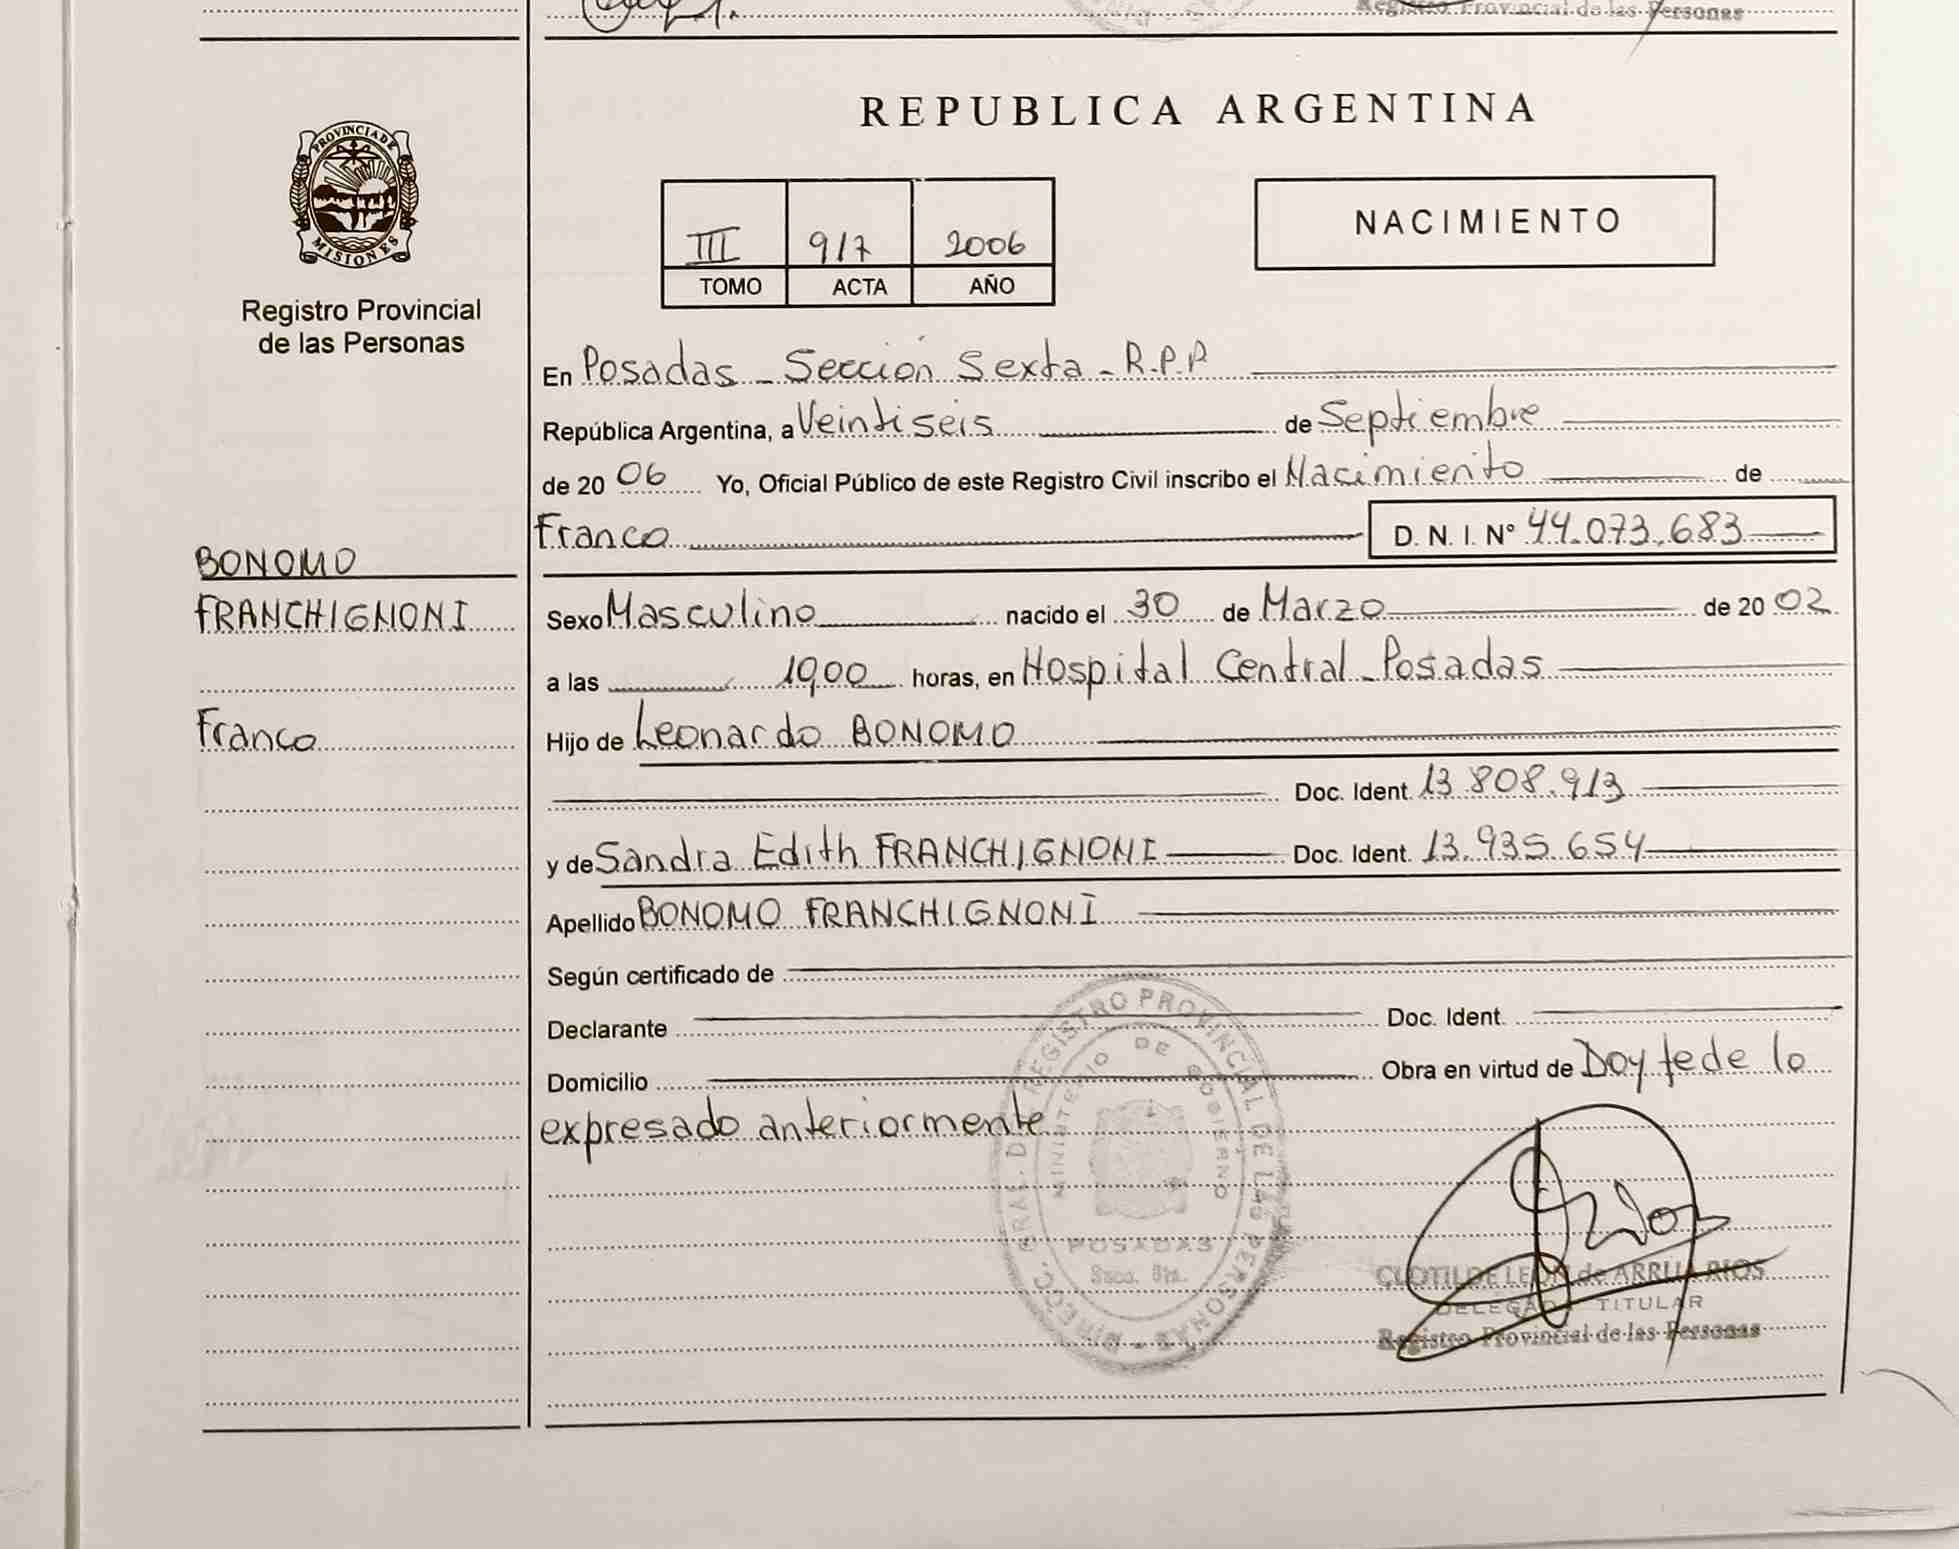 Registro Provincial de las Personas
PROVINCIA DE
MISIONES
Registro Provincial
de las Personas
REPUBLICA ARGENTINA
III 917 2006
TOMO ACTA AÑO
NACIMIENTO
En Posadas - Sección Sexta - R.P.P
República Argentina, a Veintiseis de Septiembre
de 20 06 Yo, Oficial Público de este Registro Civil inscribo el Nacimiento de
Franco D. N. I. Nº 44.073.683
BONOMO
FRANCHIGNONI
Franco
Sexo Masculino nacido el 30 de Marzo de 20 02
a las 19,00 horas, en Hospital Central - Posadas
Hijo de Leonardo BONOMO
Doc. Ident. 13.808.913
y de Sandra Edith FRANCHIGNONI Doc. Ident. 13.935.654
Apellido BONOMO FRANCHIGNONI
Según certificado de
Declarante Doc. Ident.
Domicilio Obra en virtud de Doy fe de lo
expresado anteriormente
DIRECC. GRAL. DEL REGISTRO PROVINCIAL DE LAS PERSONAS
MINISTERIO DE GOBIERNO
POSADAS
Secc. 6ta.
CLOTILDE LEON de ARRUA RIOS
DELEGADA TITULAR
Registro Provincial de las Personas